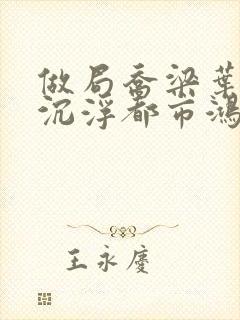 做局乔梁葉
沉浮都市鸿
王永慶